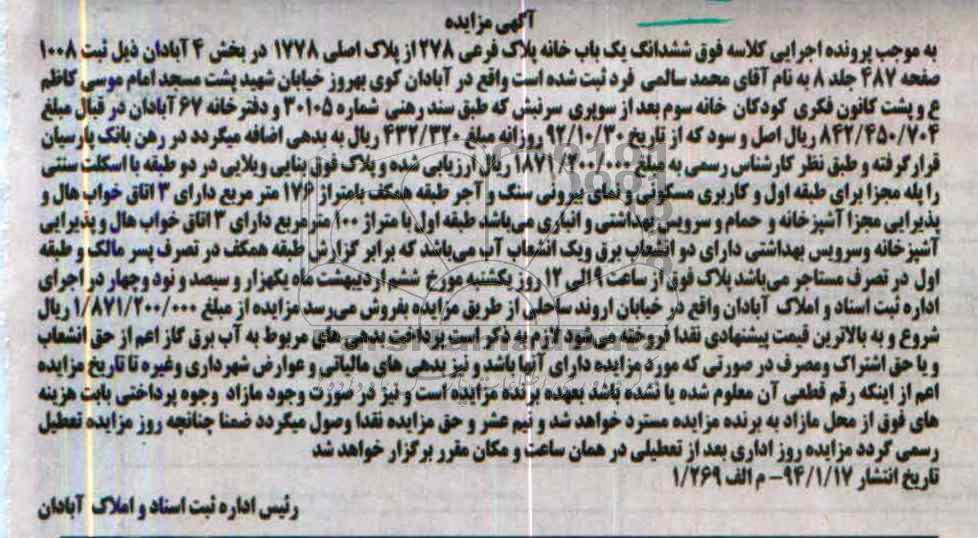 آگهی مزایده
به موجب پرونده اجرایی کلاسه فوق ششدانگ یک باب خانه پلاک فرعی ۲۷۸ از پلاک اصلی ۱۷۷۸ در بخش ۴ آبادان ذیل ثبت ۱۰۰۸
صفحه ۴۸۷ جلد ۸ به نام آقای محمد سالمی فرد ثبت شده است واقع در آبادان کوی بهروز خیابان شهید پشت مسجد امام موسی کاظم
ع و پشت کانون فکری کودکان خانه سوم بعد از سوپری سرنبش که طبق سند رهنی شماره ۳۰۱۰۵ و دفترخانه ۶۷ آبادان در قبال مبلغ
۸۴۲/۴۵۰/۷۰۴ ریال اصل و سود که از تاریخ ۹۲/۱۰/۳۰ روزانه مبلغ ۴۳۲/۳۲۰ ریال به بدهی اضافه میگردد در رهن بانک پارسیان
قرار گرفته و طبق نظر کارشناس رسمی به مبلغ ۱۸۷۱/۲۰۰/۰۰۰ ریال ارزیابی شده و پلاک فوق بنایی ویلایی در دو طبقه با اسکلت سنتی
را پله مجزا برای طبقه اول و کاربری مسکونی و نمای بیرونی سنگ و آجر طبقه همکف بامتراژ ۱۷۶ متر مربع دارای ۳ اتاق خواب هال و
پذیرایی مجزا آشپزخانه و حمام و سرویس بهداشتی و انباری می‌باشد طبقه اول با متراژ ۱۰۰ مترمربع دارای ۳ اتاق خواب هال و پذیرایی
آشپزخانه وسرویس بهداشتی دارای دو انشعاب برق ویک انشعاب آب می‌باشد که برابر گزارش طبقه همکف در تصرف پسر مالک و طبقه
اول در تصرف مستاجر می‌باشد پلاک فوق از ساعت ۹ الی ۱۲ روز یکشنبه مورخ ششم اردیبهشت ماه یکهزار و سیصد و نود وچهار در اجرای
اداره ثبت اسناد و املاک آبادان واقع در خیابان اروند ساحلی از طریق مزایده بفروش می‌رسد مزایده از مبلغ ۱/۸۷۱/۲۰۰/۰۰۰ ریال
شروع و به بالاترین قیمت پیشنهادی نقدا فروخته می‌شود لازم به ذکر است پرداخت بدهی های مربوط به آب برق گاز اعم از حق انشعاب
و یا حق اشتراک ومصرف در صورتی که مورد مزایده دارای آنها باشد و نیز بدهی های مالیاتی و عوارض شهرداری وغیره تا تاریخ مزایده
اعم از اینکه رقم قطعی آن معلوم شده یا نشده باشد بعهده برنده مزایده است و نیز در صورت وجود مازاد وجوه پرداختی بابت هزینه
های فوق از محل مازاد به برنده مزایده مسترد خواهد شد و نیم عشر و حق مزایده نقدا وصول میگردد ضمنا چنانچه روز مزایده تعطیل
رسمی گردد مزایده روز اداری بعد از تعطیلی در همان ساعت و مکان مقرر برگزار خواهد شد
تاریخ انتشار ۹۴/۱/۱۷- م الف ۱/۲۶۹
رئیس اداره ثبت اسناد و املاک آبادان